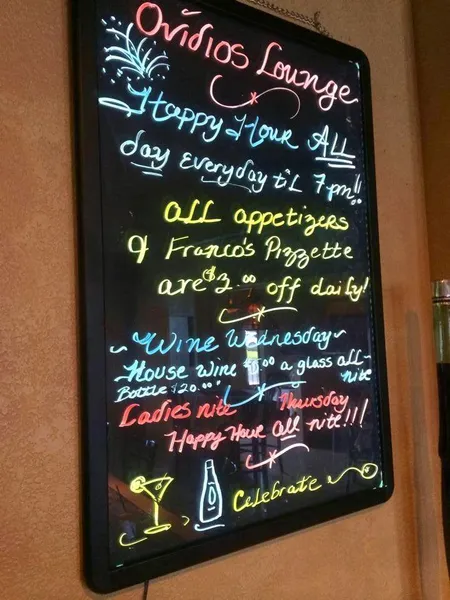 Ovidios Lounge
Happy Hour ALL
day Everyday til 7pm!!
ALL appetizers
& Franco's Pizzette
are $2.00 off daily!
~ Wine Wednesday ~
House wine $5.00 a glass all-
Bottle $20.00 nite
Ladies nite Thursday
Happy Hour all nite!!!
Celebrate